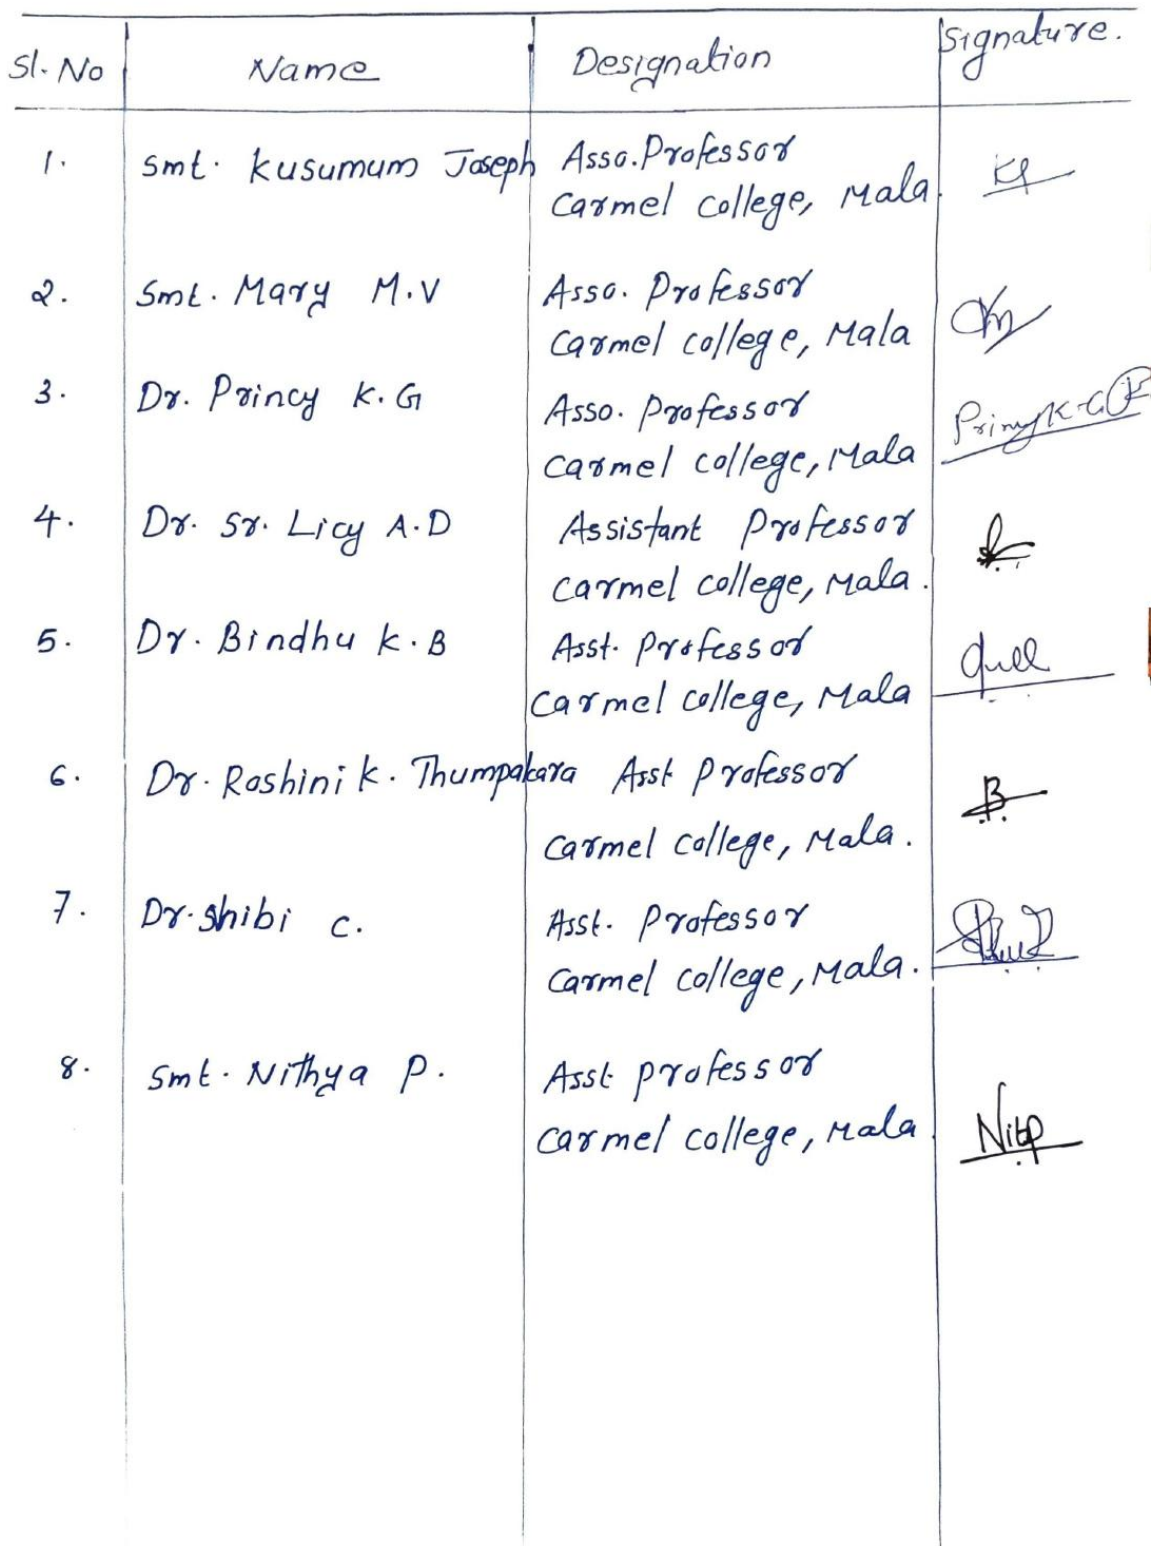 Sl. No Name Designation Signature.
1. Smt. Kusumum Joseph Asso. Professor
Carmel College, Mala
2. Smt. Mary M.V Asso. Professor
Carmel College, Mala
3. Dr. Princy K.G Asso. Professor
Carmel College, Mala
Princy K.G
4. Dr. Sr. Licy A.D Assistant Professor
Carmel College, Mala.
5. Dr. Bindhu K.B Asst. Professor
Carmel College, Mala
6. Dr. Roshini K. Thumpakara Asst Professor
Carmel College, Mala.
7. Dr. Shibi C. Asst. Professor
Carmel College, Mala.
8. Smt. Nithya P. Asst Professor
Carmel College, Mala